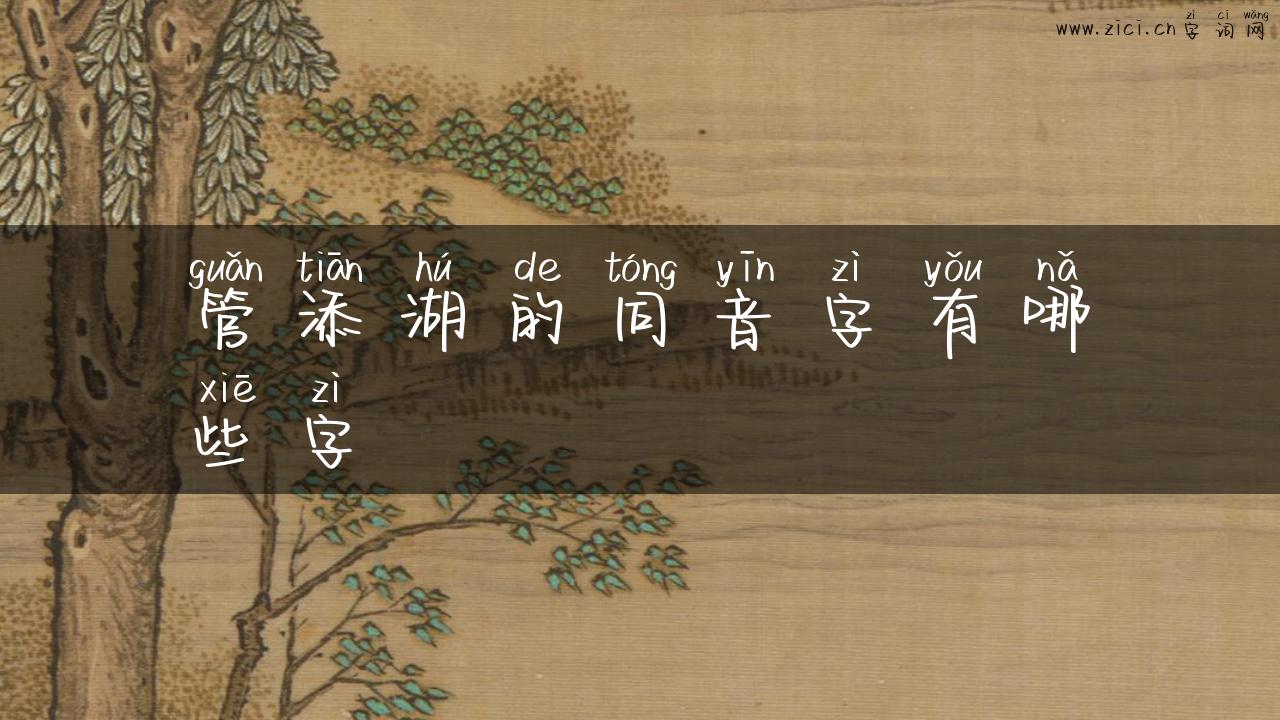 zì cí wǎng
www.zici.cn 字词网
guǎn tiān hú de tóng yīn zì yǒu nǎ
管添湖的同音字有哪
xiē zì
些字